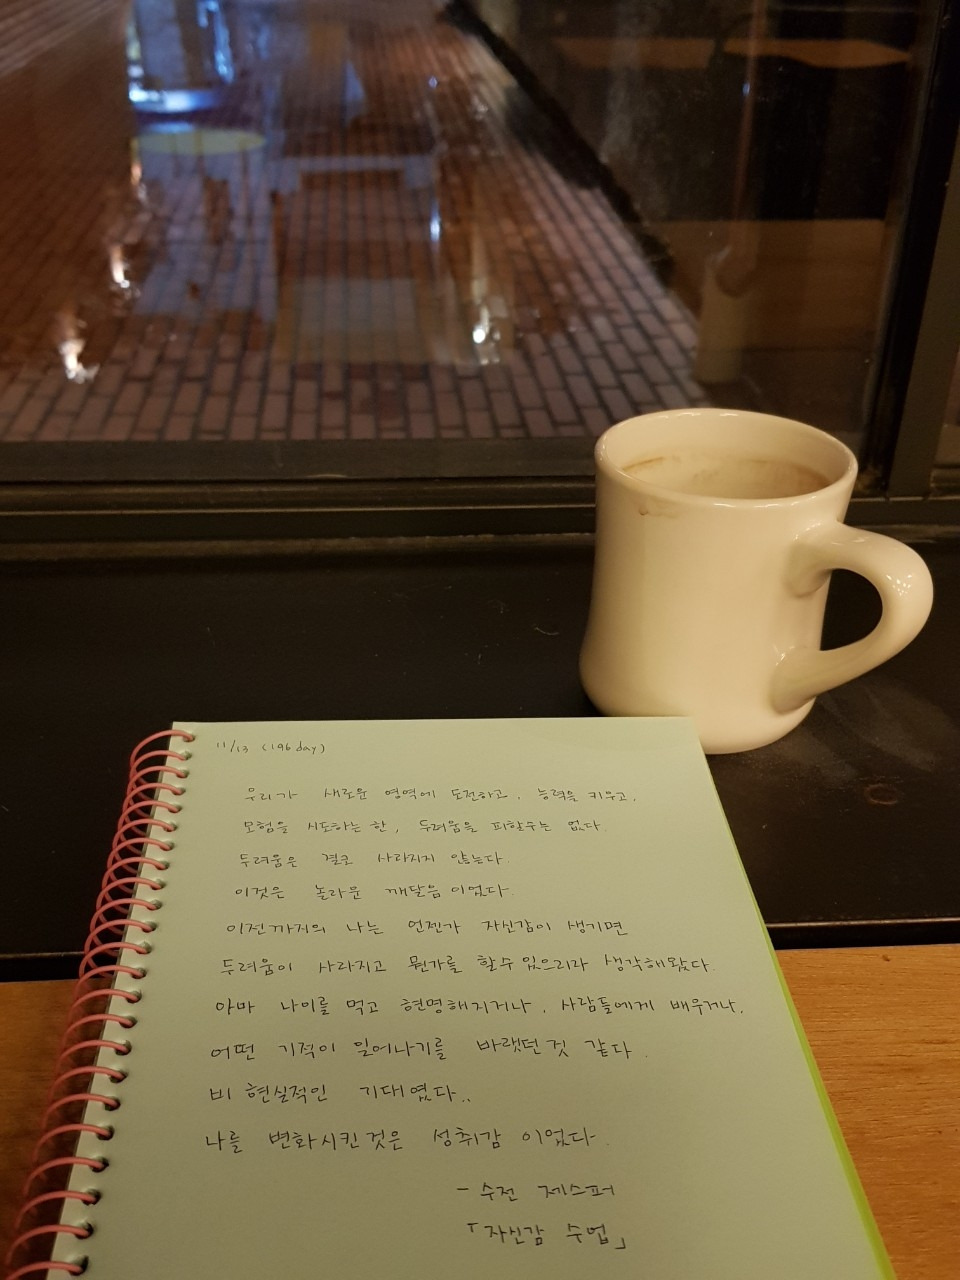 11/13 (196 day)
우리가 새로운 영역에 도전하고, 능력을 키우고,
모험을 시도하는 한, 두려움을 피할수는 없다.
두려움은 결코 사라지지 않는다.
이것은 놀라운 깨달음이었다.
이전까지의 나는 언젠가 자신감이 생기면
두려움이 사라지고 뭔가를 할수있으리라 생각해왔다.
아마 나이를 먹고 현명해지거나, 사람들에게 배우거나,
어떤 기적이 일어나기를 바랬던것 같다.
비현실적인 기대였다..
나를 변화시킨것은 성취감 이었다.
- 수전 제스퍼
「자신감 수업」